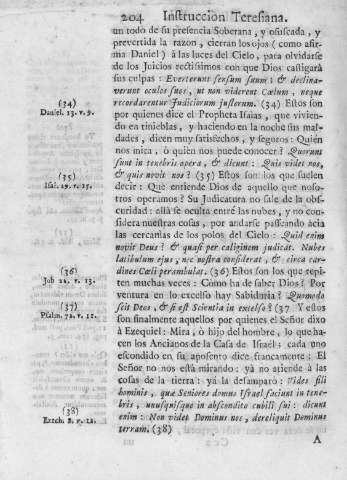 204 Instruccion Teresiana.
un todo de su presencia Soberana, y ofuscada, y
prevertida la razon, cierran los ojos (como afir-
ma Daniel) à las luces del Cielo, para olvidarse
de los Juicios rectissimos con que Dios castigarà
sus culpas: Everterunt sensum suum; & declina-
verunt oculos suos, ut non viderent Cœlum, neque
recordarentur Judiciorum justorum. (34) Estos son
por quienes dice el Propheta Isaias, que vivien-
do en tinieblas, y haciendo en la noche sus mal-
dades, dicen muy satisfechos, y seguros: Quièn
nos mira, ò quièn nos puede conocer? Quorum
sunt in tenebris opera, & dicunt: Quis videt nos,
& quis novit nos? (35) Estos son los que suelen
decir: Què entiende Dios de aquello que noso-
tros operamos? Su Judicatura no sale de la obs-
curidad: allà se oculta entre las nubes, y no con-
sidera nuestras cosas, por andarse passeando àcia
las cercanìas de los polos del Cielo: Quid enim
novit Deus? & quasi per caliginem judicat. Nubes
latibulum ejus, nec nostra considerat, & circa car-
dines Cœli perambulat. (36) Estos son los que repi-
ten muchas veces: Còmo ha de saber Dios? Por
ventura en lo excelso hay Sabiduria? Quomodo
scit Deus, & si est Scientia in excelso? (37 Y estos
son finalmente aquellos por quienes el Señor dixo
à Ezequiel: Mira, ò hijo del hombre, lo que ha-
cen los Ancianos de la Casa de Israèl: cada uno
escondido en su aposento dice francamente: El
Señor no nos està mirando: yà no atiende à las
cosas de la tierra: yà la desamparò: Vides fili
hominis, quæ Seniores domus Israel faciunt in tene-
bris, unusquisque in abscondito cubili sui: dicunt
enim: Non videt Dominus nos, dereliquit Dominus
terram. (38)
A
(34)
Daniel. 13. v. 9.
(35)
Isai. 29. v. 15.
(36)
Job 22. v. 13.
(37)
Psalm. 72. v. 11.
(38)
Ezech. 8. v. 12.